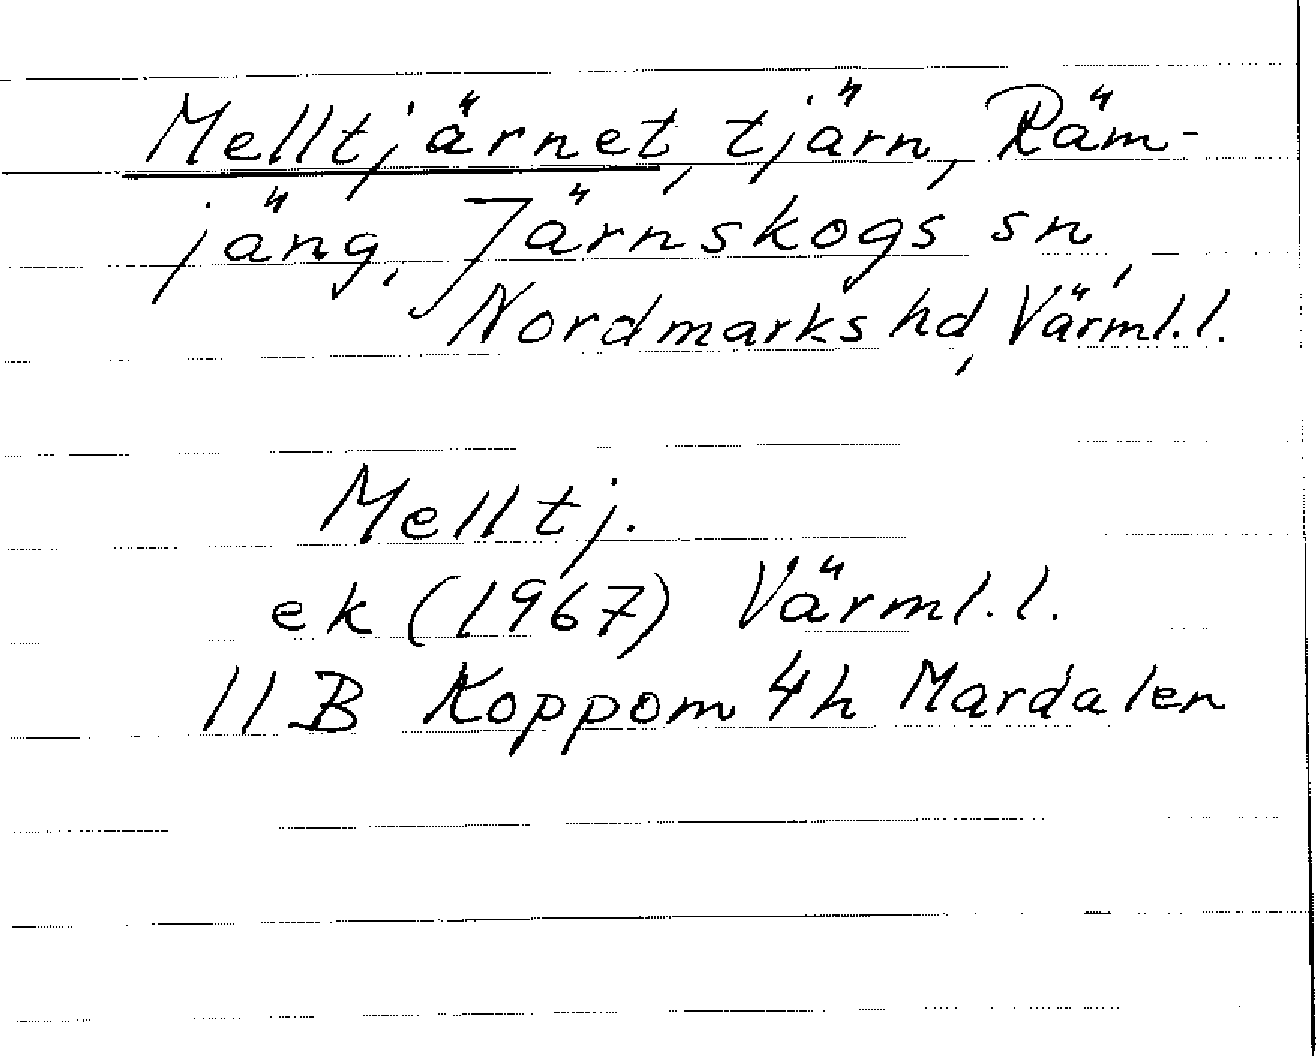 Melltjärnet, tjärn, Räm-
jäng, Järnskogs sn,
Nordmarks hd, Värml.l.
Melltj.
ek (1967) Värml.l.
11B Koppom 4h Mardalen